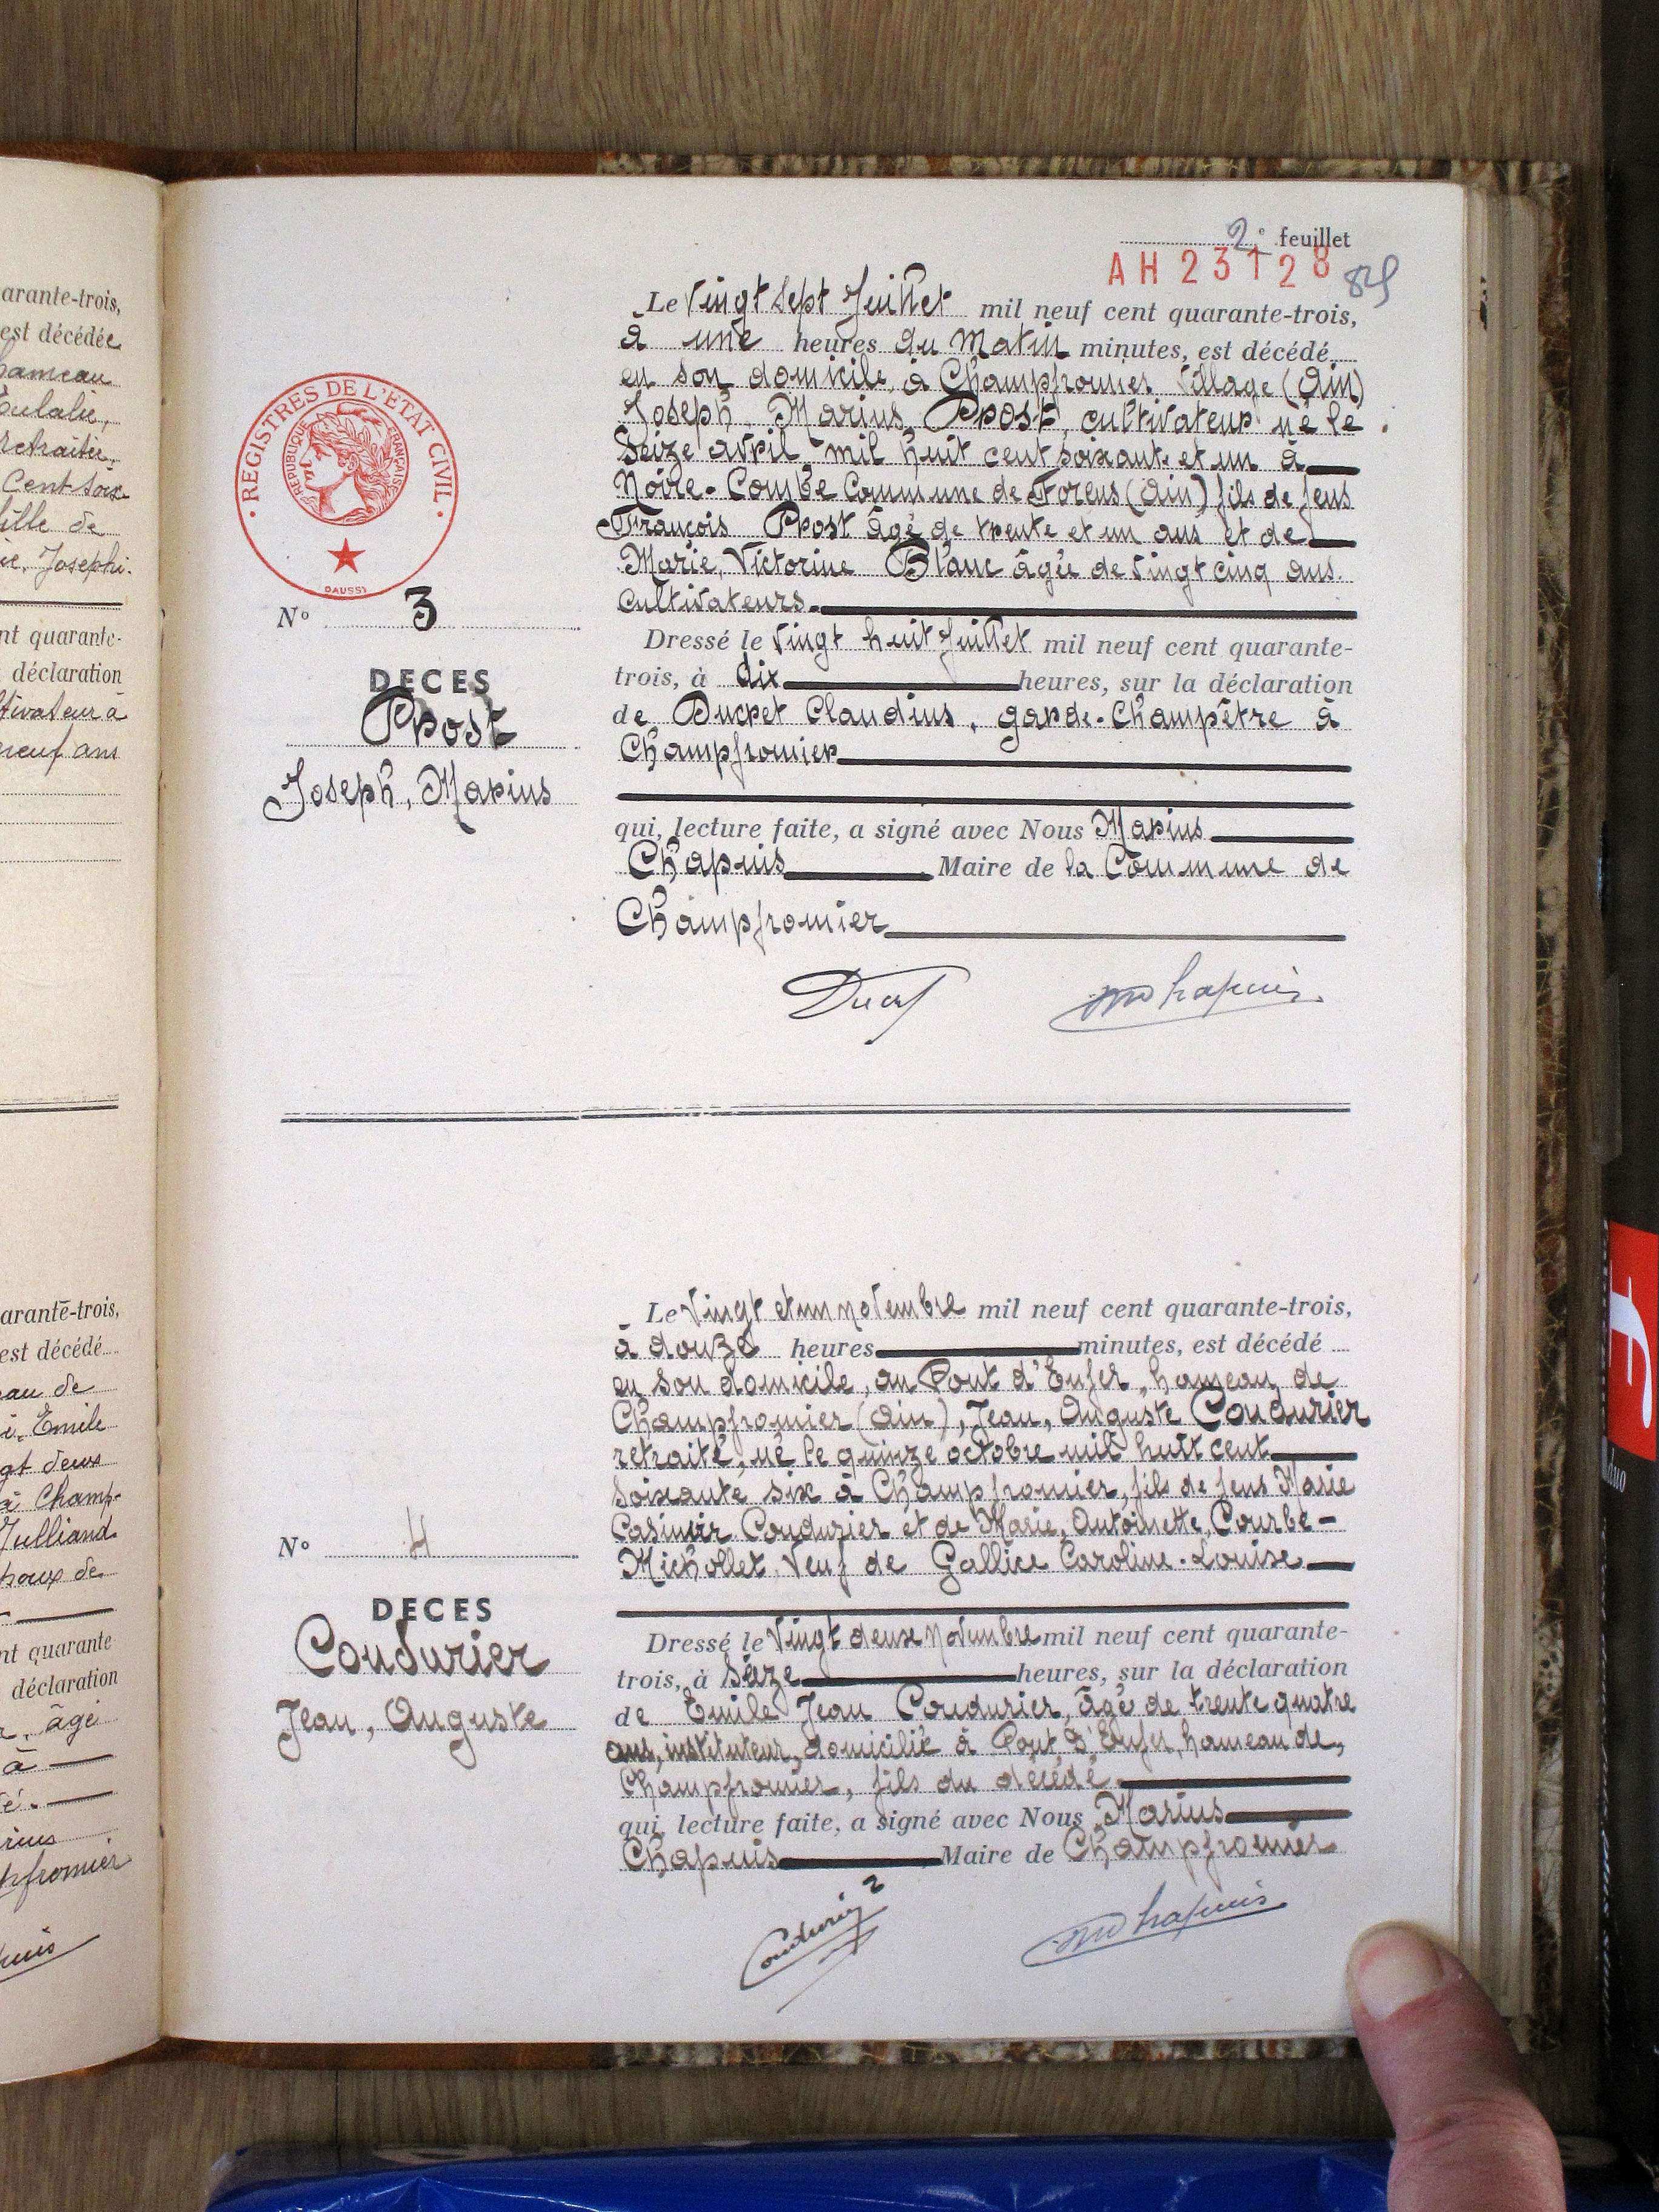 arante-trois,
est décédée
hameau
Eulalie,
retraitée,
Cent soix-
fille de
ie, Josephi-
nt quarante-
déclaration
ltivateur à
neuf ans
arante-trois,
est décédé
eau de
Emile
gt deux
à Champ-
Julliand
haux de
nt quarante
déclaration
r, âgé
à
é.
rius
pfromier
puis
2e feuillet
AH 23128
REGISTRES DE L'ETAT CIVIL
REPUBLIQUE FRANÇAISE
DAUSSY
Le Vingt sept Juillet mil neuf cent quarante-trois,
à une heures du Matin minutes, est décédé
en son domicile, à Champfromier Village (Ain)
Joseph, Marius, Prost, cultivateur né le
Seize avril mil huit cent soixante et un à
Noire-Combe Commune de Forens (Ain) fils de feus
François Prost âgé de trente et un ans et de
Marie, Victorine Blanc âgée de vingt cinq ans.
cultivateurs.
N° 3
DECES
Prost
Joseph, Marius
Dressé le Vingt huit Juillet mil neuf cent quarante-
trois, à dix heures, sur la déclaration
de Ducret Claudius, garde-Champêtre à
Champfromier
qui, lecture faite, a signé avec Nous Marius
Chapuis Maire de la Commune de
Champfromier
Ducret
M Chapuis
Le Vingt et un novembre mil neuf cent quarante-trois,
à douze heures minutes, est décédé
en son domicile, au Pont d'Enfer, hameau de
Champfromier (Ain), Jean, Auguste Coudurier
retraité, né le quinze octobre mil huit cent
soixante six à Champfromier, fils de feus Marie
Casimir Coudurier et de Marie, Antoinette, Courbe-
Michollet. Veuf de Gallice Caroline-Louise
N° 4
DECES
Coudurier
Jean, Auguste
Dressé le Vingt deux Novembre mil neuf cent quarante-
trois, à Seize heures, sur la déclaration
de Emile Jean Coudurier, âgé de trente quatre
ans, instituteur, domicilié à Pont d'Enfer, hameau de,
Champfromier, fils du décédé.
qui, lecture faite, a signé avec Nous Marius
Chapuis Maire de Champfromier
Coudurier
M Chapuis